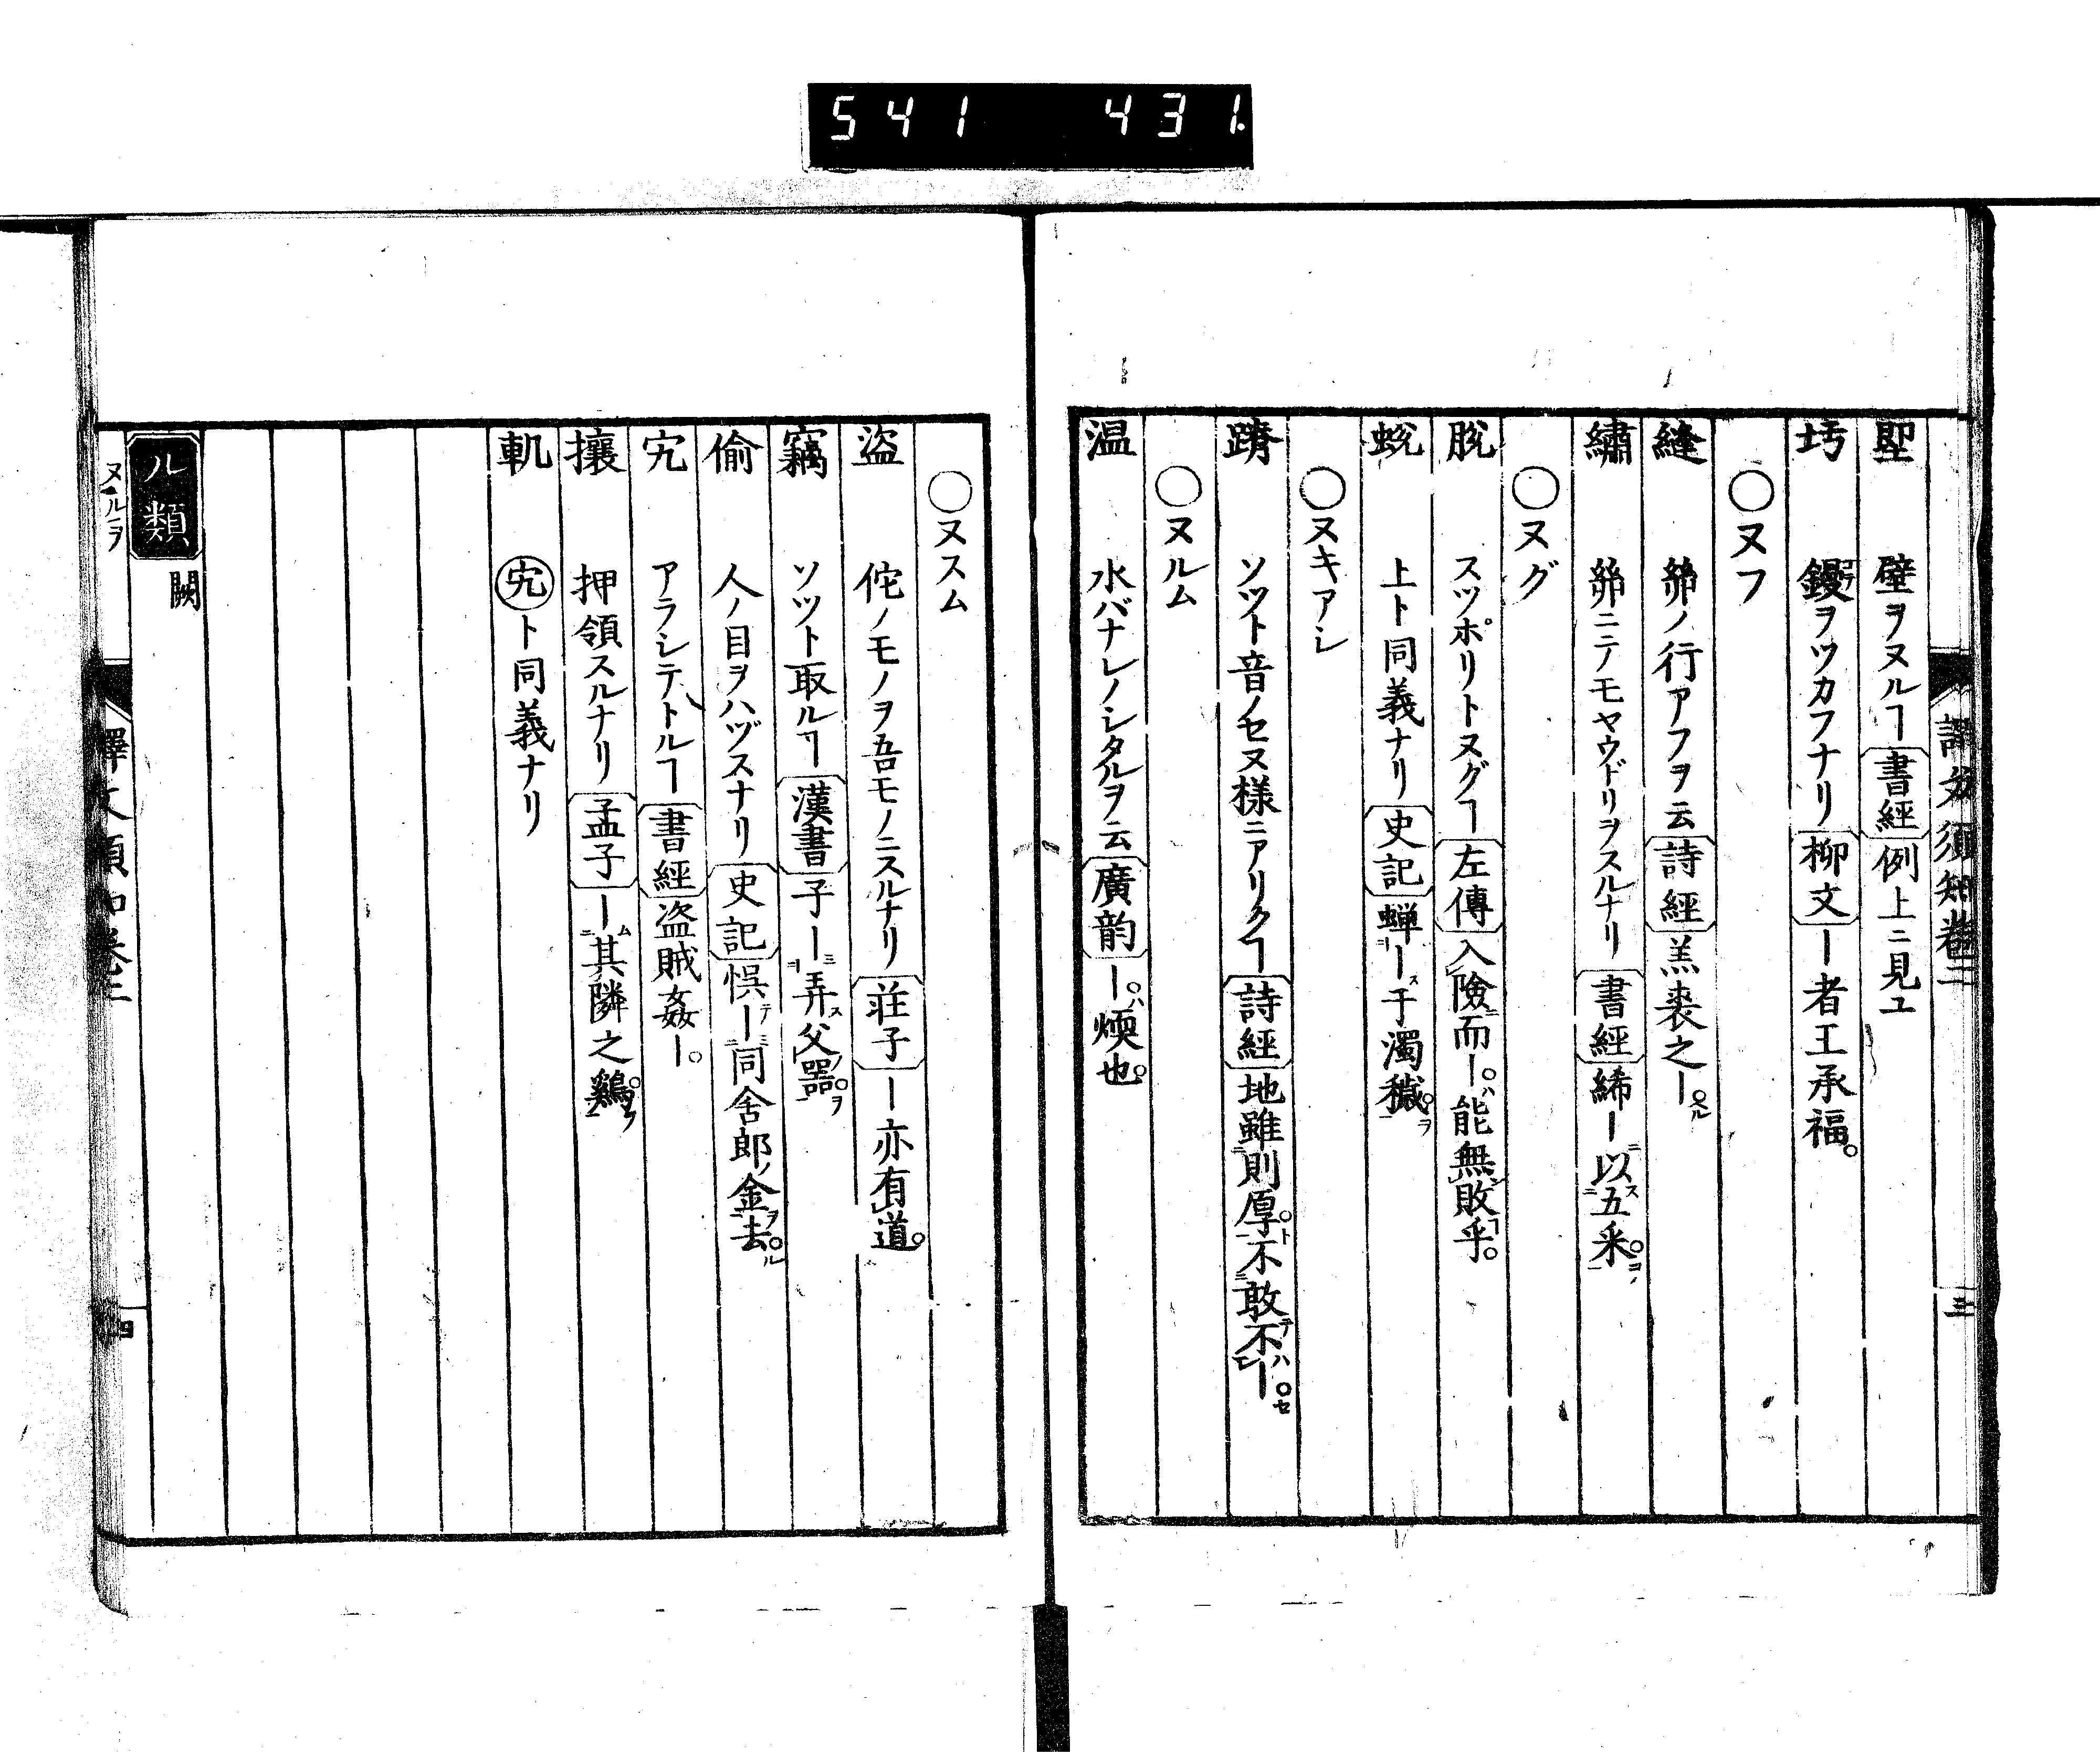 541 431
譯文須知卷二
三
堲 壁ヲヌルヿ書經例上ニ見ユ
圬 鏝ヲツカフナリ柳文ー者王承福
○ヌフ
縫 ノ行アフヲ云詩經羔裘之ー
繡 ニテモヤウドリヲスルナリ書經絺ー以五采ヲ
○ヌグ
脫 スッポリトヌグヿ左傳入險而ーハ能無敗乎
蛻 上ト同義ナリ史記蟬ー于濁穢ヲ
○ヌキアシ
蹐 ソツト音ノセヌ様ニアリクヿ詩經地雖則厚不敢不ー
○ヌルム
温 水バナレノシタルヲ云廣韵ーハ煗也
○ヌスム
盗 侘ノモノヲ吾モノニスルナリ荘子ー亦有道
竊 ソツト取ルヿ漢書子ー弄父器ヲ
偷 人ノ目ヲハヅスナリ史記悞ー同舎郎金去ル
宄 アラシテトルヿ書經盗賊姦ー
攘 押領スルナリ孟子ー其隣之鷄ヲ
軌 宄ト同義ナリ
ル類 闕
ヌルヲ
譯文須知卷二
四